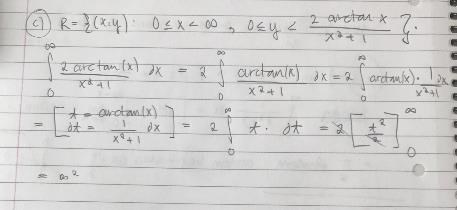 c) R = {(x,y): 0 ≤ x < ∞, 0 ≤ y < 2 arctan x / x²+1 }.
∫₀^∞ 2 arctan(x) / x²+1 dx = 2 ∫₀^∞ arctan(x) / x²+1 dx = 2 ∫₀^∞ arctan(x) · 1 / x²+1 dx
= [ t = arctan(x) dt = 1 / x²+1 dx ] = 2 ∫₀^∞ t · dt = 2 [ t² / 2 ]₀^∞
= ∞²